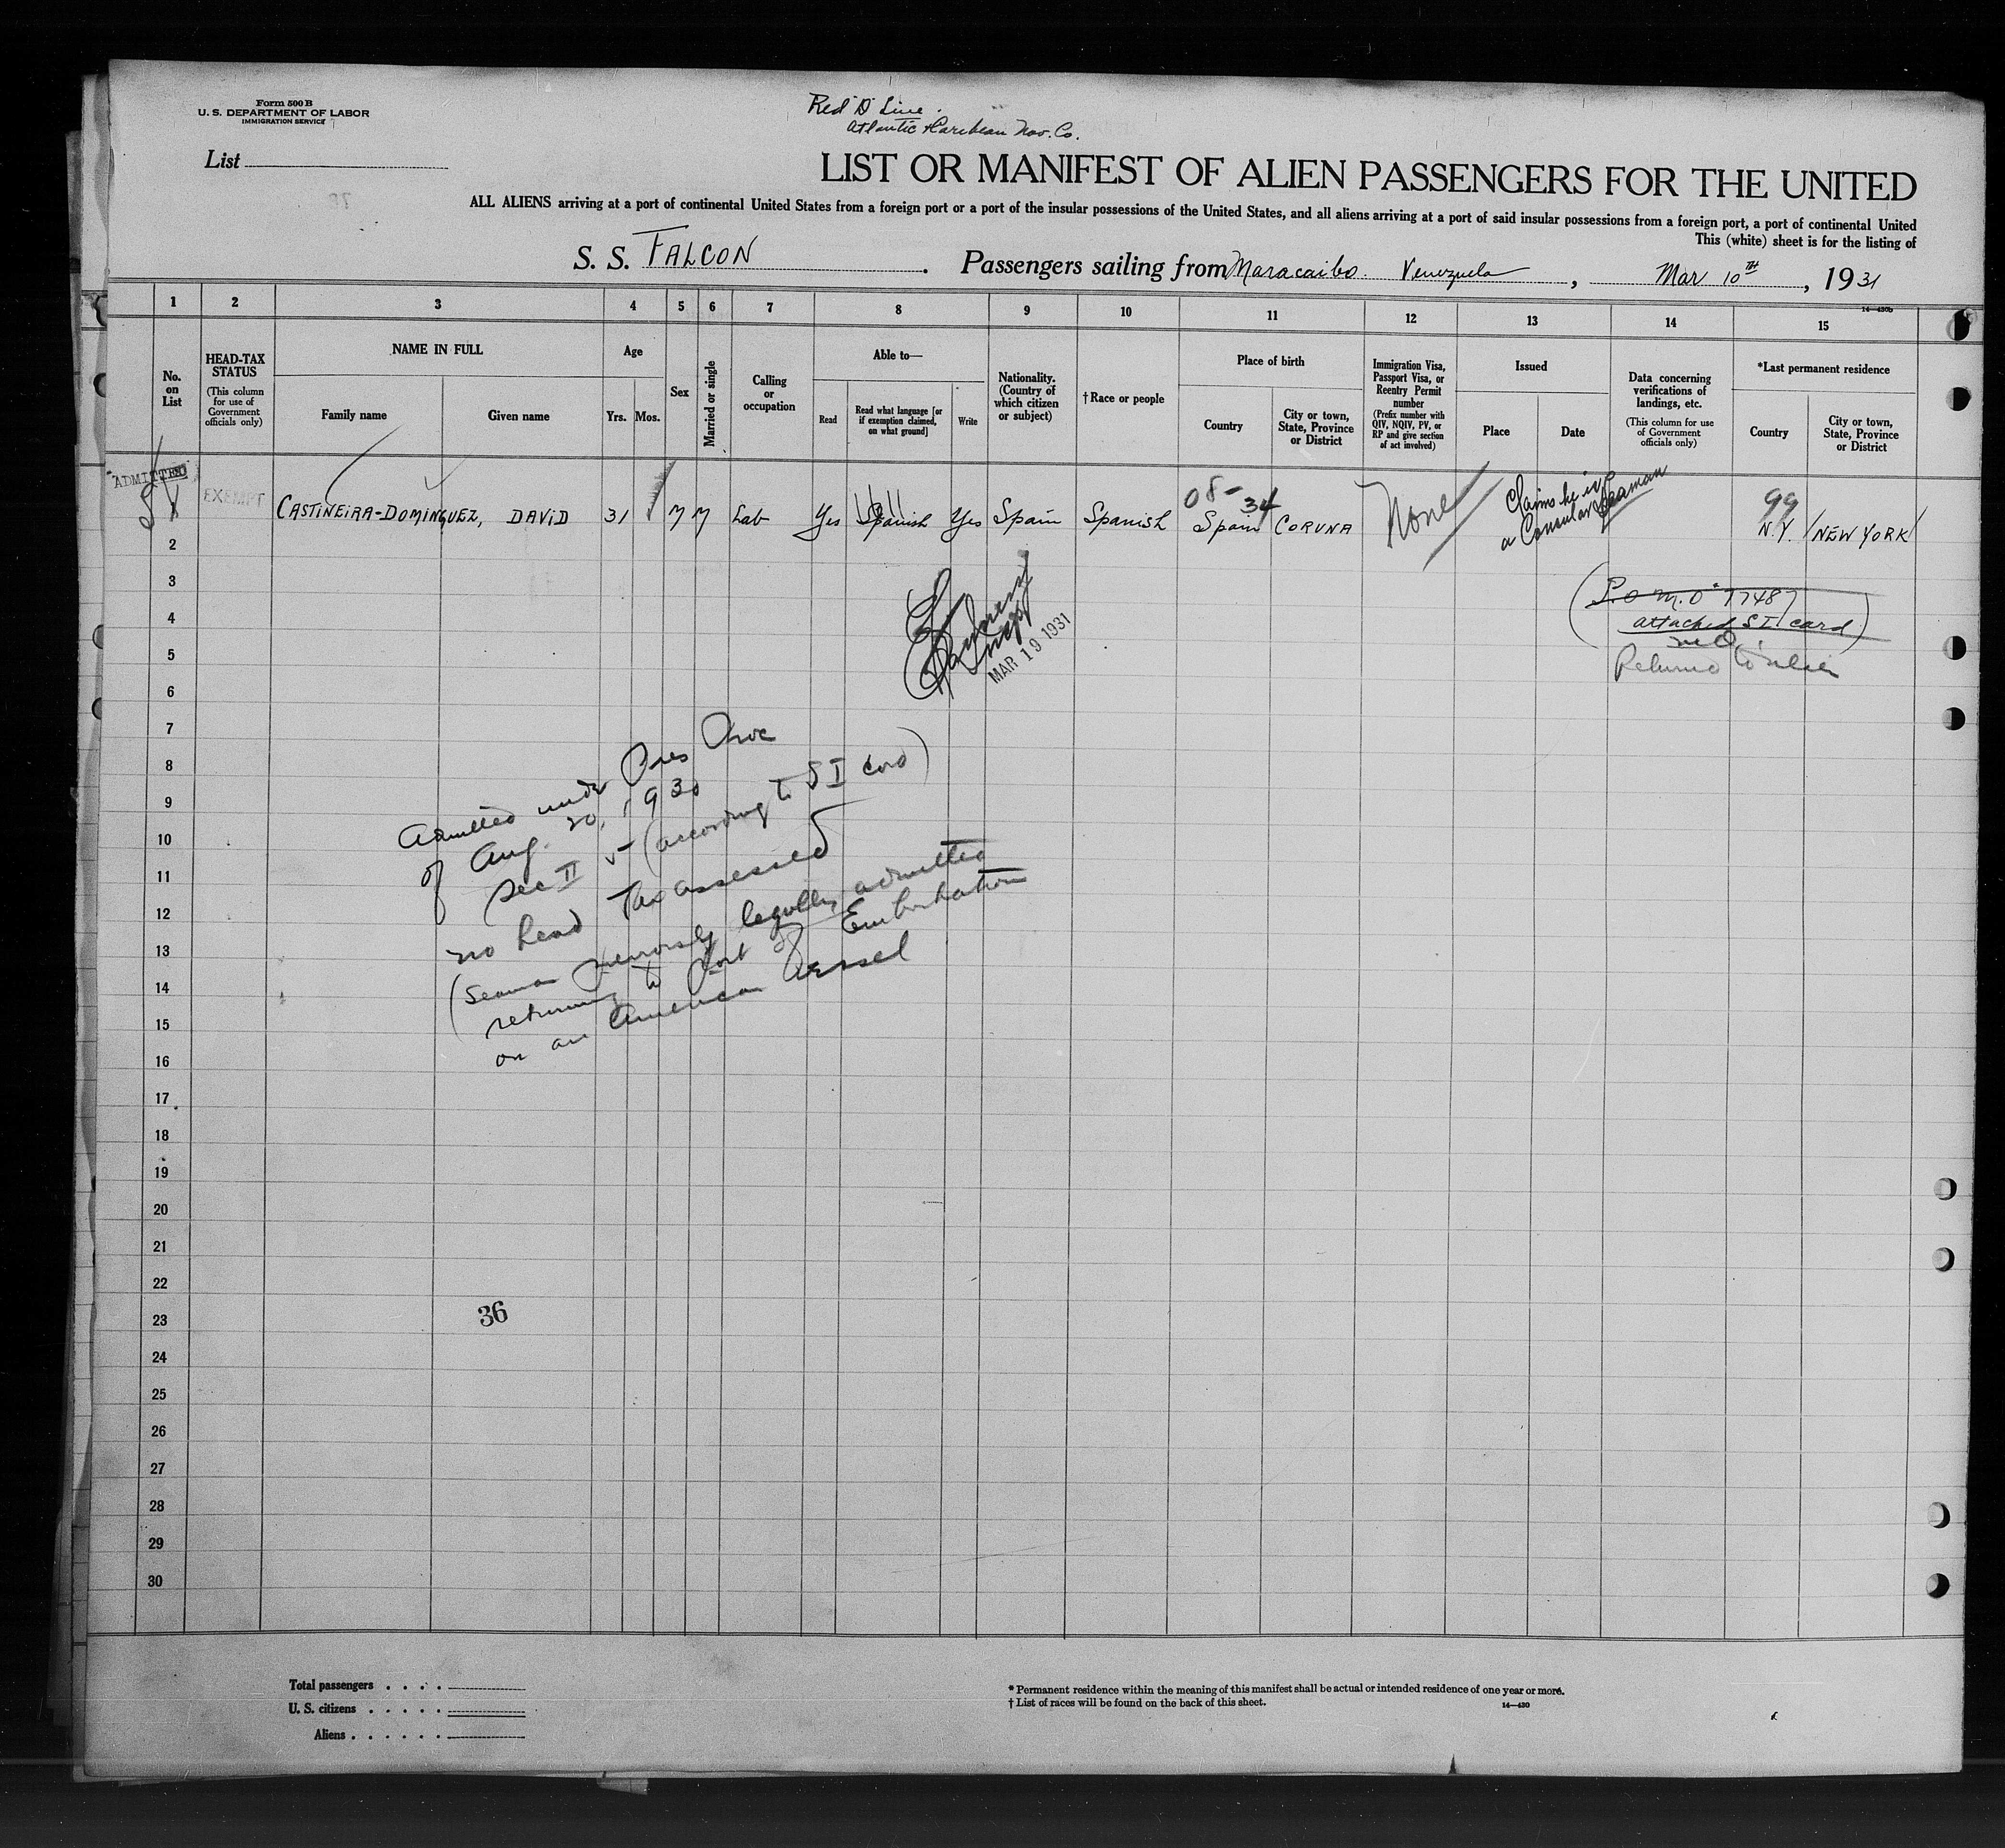 Form 500 B
U. S. DEPARTMENT OF LABOR
IMMIGRATION SERVICE
Red "D" Line.
Atlantic & Caribean Nav. Co.
List
LIST OR MANIFEST OF ALIEN PASSENGERS FOR THE UNITED
ALL ALIENS arriving at a port of continental United States from a foreign port or a port of the insular possessions of the United States, and all aliens arriving at a port of said insular possessions from a foreign port, a port of continental United
This (white) sheet is for the listing of
S. S. FALCON. Passengers sailing from Maracaibo Venezuela, Mar 10TH, 1931
14—430b
1 2 3 4 5 6 7 8 9 10 11 12 13 14 15
No. on List
HEAD-TAX STATUS
(This column for use of Government officials only)
NAME IN FULL
Family name
Given name
Age
Yrs. Mos.
Sex
Married or single
Calling or occupation
Able to—
Read
Read what language [or if exemption claimed, on what ground]
Write
Nationality. (Country of which citizen or subject)
†Race or people
Place of birth
Country
City or town, State, Province or District
Immigration Visa, Passport Visa, or Reentry Permit number
(Prefix number with QIV, NQIV, PV, or RP and give section of act involved)
Issued
Place
Date
Data concerning verifications of landings, etc.
(This column for use of Government officials only)
*Last permanent residence
Country
City or town, State, Province or District
ADMITTED
EXEMPT
CASTINEIRA-DOMINGUEZ, DAVID 31 M M Lab Yes Spanish Yes Spain Spanish Spain CORUNA None N.Y. NEW YORK
08-34
Claims he is
a Consular Seaman
99
2
3
4
5
6
7
8
9
10
11
12
13
14
15
16
17
18
19
20
21
22
23
24
25
26
27
28
29
30
Insp
MAR 19 1931
P.O M.O 77487
attached S I card
Returned to alien
Admitted under Pres Proc
of Aug. 20, 1930
Sec II (according to S I card)
no head Tax assessed
(Seaman previously legally admitted
returning to Port of Embarkation
on an American Vessel
36
Total passengers
U. S. citizens
Aliens
* Permanent residence within the meaning of this manifest shall be actual or intended residence of one year or more.
† List of races will be found on the back of this sheet.
14—430